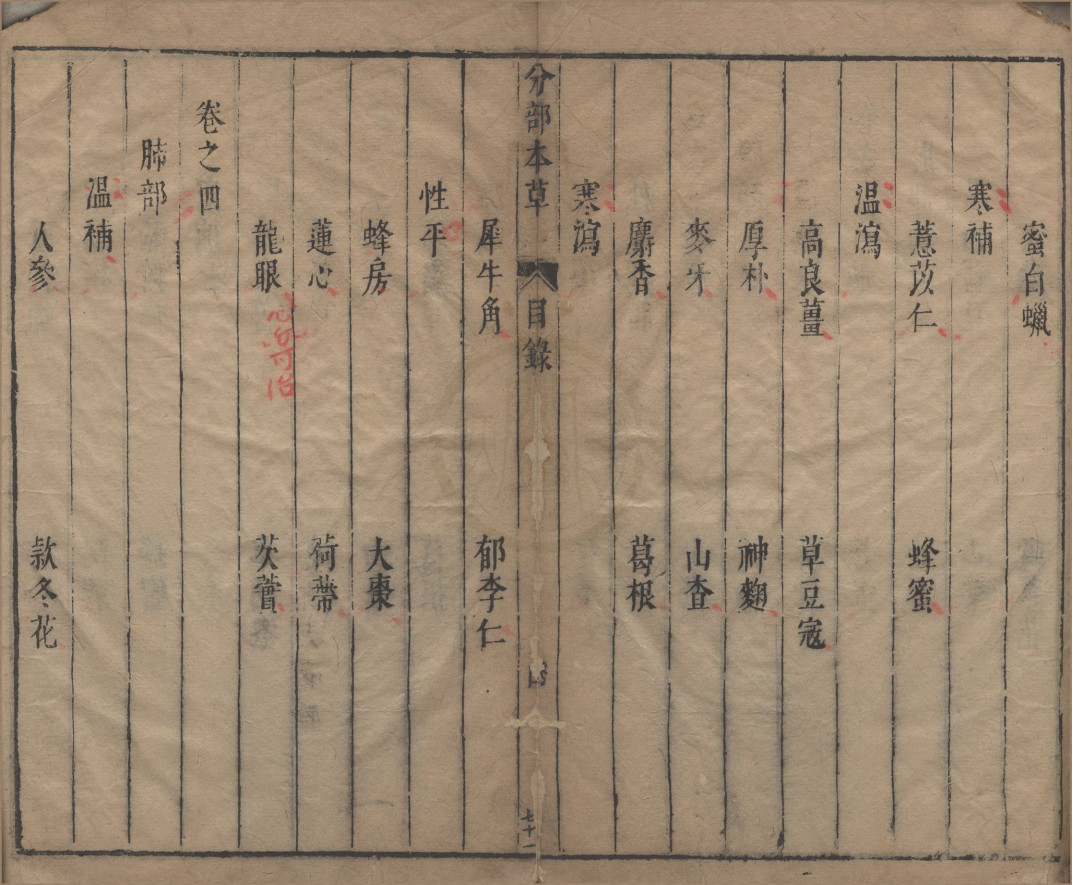 蜜白蠟
寒補
薏苡仁 蜂蜜
温瀉
高良薑 草豆寇
厚朴 神麴
麥牙 山查
麝香 葛根
寒瀉
分部本草 目錄
七十一
犀牛角 郁李仁
性平
蜂房 大棗
蓮心 荷蒂
龍眼 芡實
卷之四
肺部
温補
人參 款冬花